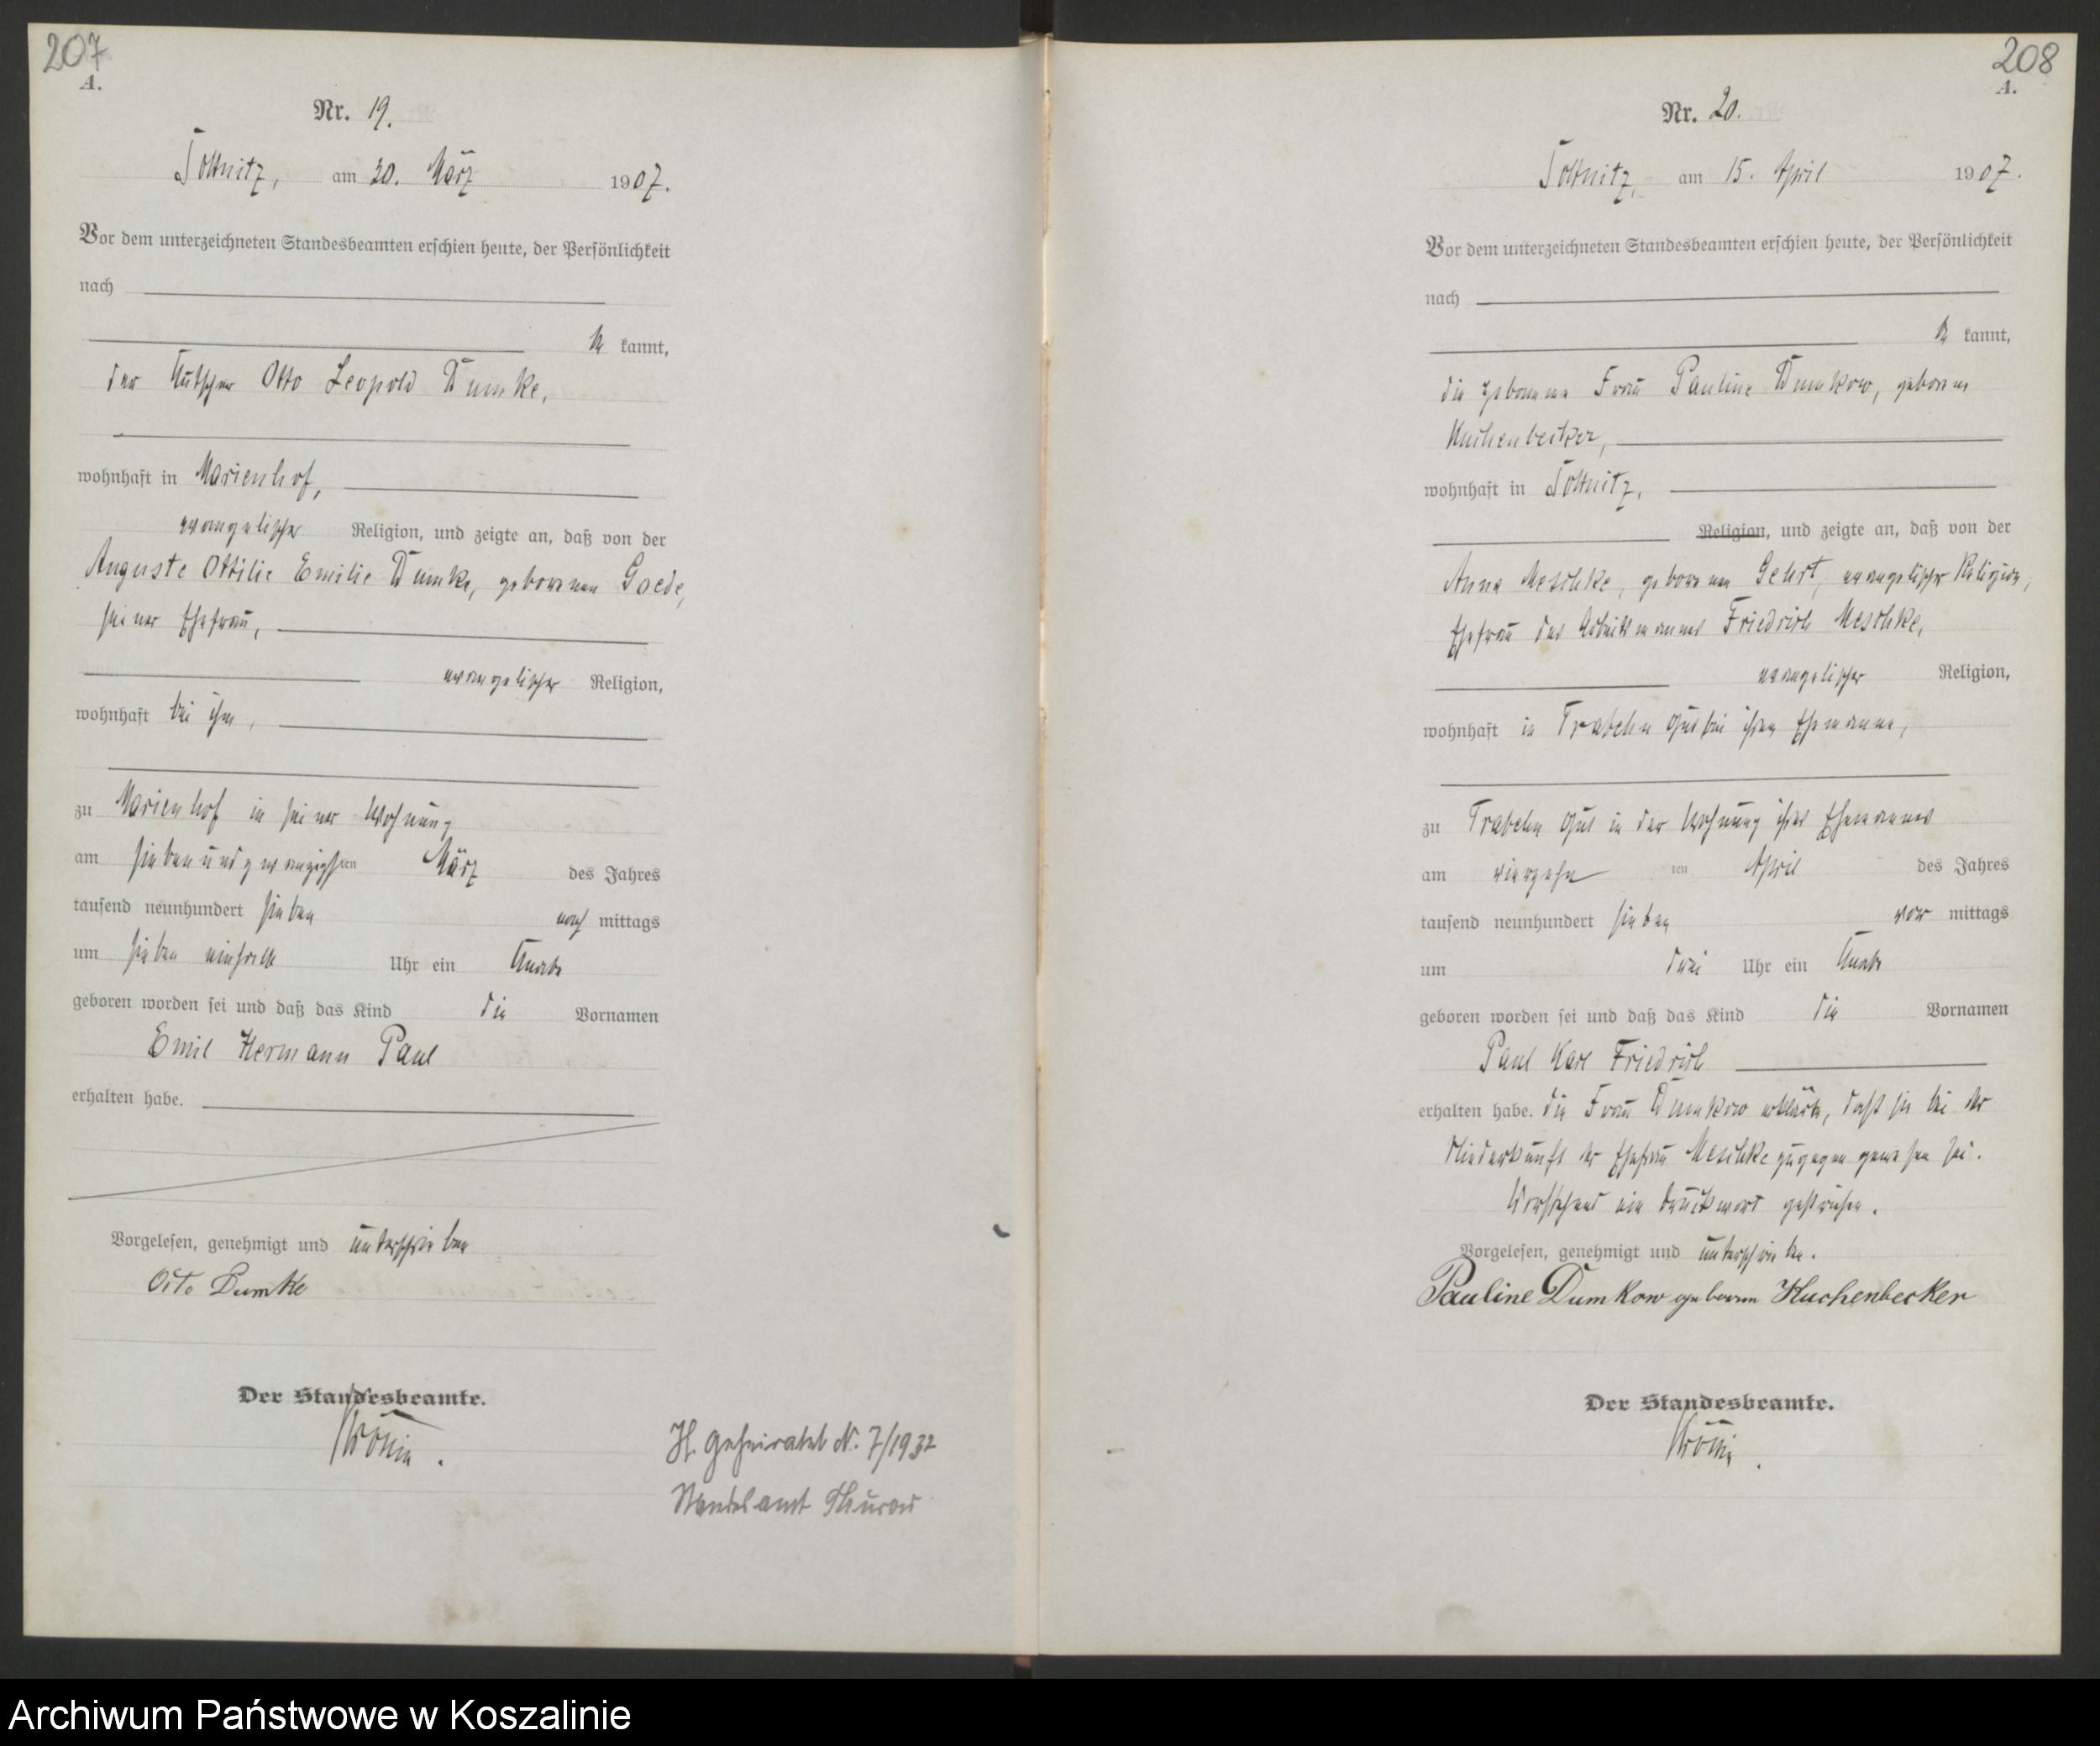 207
A.
Nr. 19.
am 30. März 1907.
Vor dem unterzeichneten Standesbeamten erschien heute, der Persönlichkeit
nach
kannt,
der Kutscher Otto Leopold Dumke,
wohnhaft in Marienhof,
evangelischer Religion, und zeigte an, daß von der
Auguste Ottilie Emilie Dumke, geborenen Goede,
seiner Ehefrau,
evangelischer Religion,
wohnhaft bei ihm,
zu Marienhof in seiner Wohnung
am siebenundzwanzigsten März des Jahres
tausend neunhundert sieben nachmittags
um sieben einhalb Uhr ein Knabe
geboren worden sei und daß das Kind die Vornamen
Emil Hermann Paul
erhalten habe.
Vorgelesen, genehmigt und unterschrieben
Otto Dumke
Der Standesbeamte.
H. geheiratet N. 7/1932
Standesamt
208
A.
Nr. 20.
am 15. April 1907.
Vor dem unterzeichneten Standesbeamten erschien heute, der Persönlichkeit
nach
kannt,
die Hebamme Frau Pauline Dumkow, geborene
Kuchenbecker,
wohnhaft in
Religion, und zeigte an, daß von der
Anna Meschke, geborenen Gehrt, evangelischer Religion,
Ehefrau des Arbeitsmannes Friedrich Meschke,
evangelischer Religion,
wohnhaft in Trabehn Gut bei ihrem Ehemanne,
zu Trabehn Gut in der Wohnung ihres Ehemannes
am vierzehnten April des Jahres
tausend neunhundert sieben vormittags
um drei Uhr ein Knabe
geboren worden sei und daß das Kind die Vornamen
Paul Karl Friedrich
erhalten habe. Die Frau Dumkow erklärte, daß sie bei der
Niederkunft der Ehefrau Meschke zugegen gewesen sei.
Vorstehend ein Druckwort gestrichen.
Vorgelesen, genehmigt und unterschrieben.
Pauline Dumkow geborene Kuchenbecker
Der Standesbeamte.
Archiwum Państwowe w Koszalinie